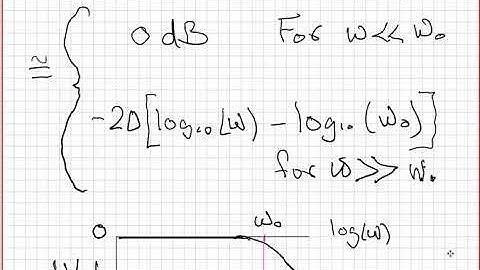 ≅ { 0 dB For ω<<ω₀
-20[log₁₀(ω) - log₁₀(ω₀)]
for ω>>ω₀
0 ω₀ log(ω)